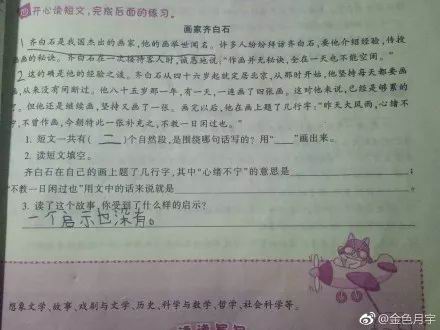 开心读短文,完成后面的练习。
画家齐白石
1 齐白石是我国杰出的画家,他的画举世闻名。许多人纷纷拜访齐白石,要他介绍经验,传授
画画的秘诀。齐白石在一次接待客人时,诚恳地说:“作画并无秘诀,全在一天也不能空闲。”
2 这的确是他的经验之谈。齐白石从四十六岁起就定居北京,从那时开始,他坚持每天都要画
画,从来没有间断过。他八十五岁那一年,有一天,一连画了四张画。这对他来说,已经是够累的
了。但他还是继续画,坚持又画了一张。画完以后,他在画上题了几行字:“昨天大风雨,心绪不
宁,不曾作画,今朝特此一张补充之,不教一日闲过也。”
1. 短文一共有( 二 )个自然段,是围绕哪句话写的?用“___”画出来。
2. 读短文填空。
齐白石在自己的画上题了几行字,其中“心绪不宁”的意思是____;
“不教一日闲过也”用文中的话来说就是____。
3. 读了这个故事,你受到了什么样的启示?
一个启示也没有。
想象文学、故事、戏剧与文学、历史、科学与数学、哲学、社会科学等。
@金色月宇